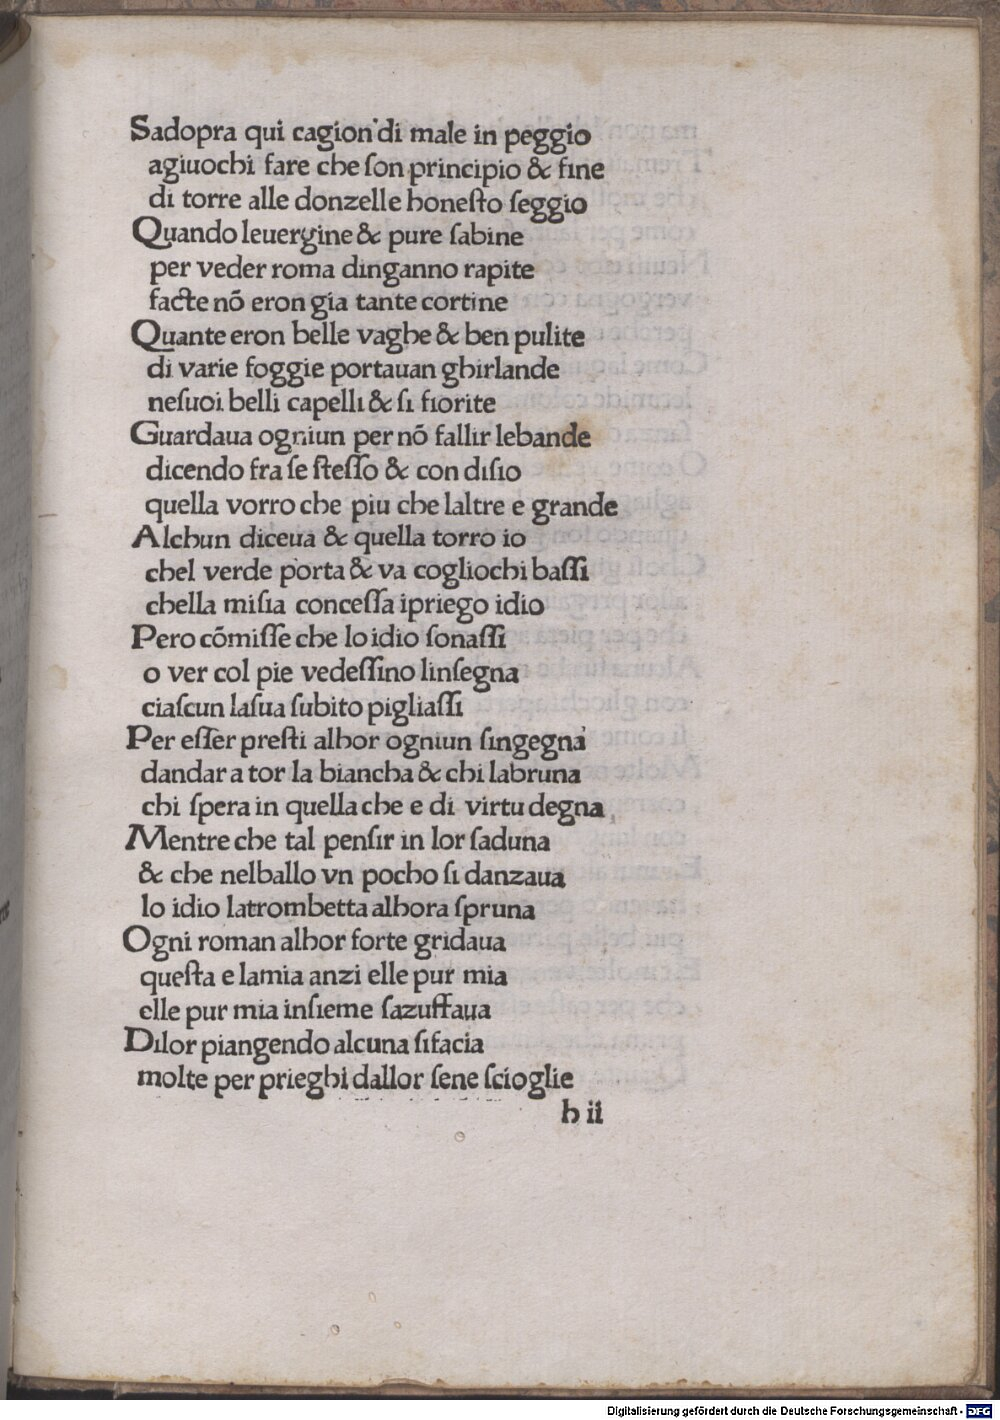 Sadopra qui cagion di male in peggio
agiuochi fare che ſon principio & fine
di torre alle donzelle honeſto ſeggio
Quando leuergine & pure ſabine
per veder roma dinganno rapite
facte nō eron gia tante cortine
Quante eron belle vaghe & ben pulite
di varie foggie portauan ghirlande
neſuoi belli capelli & ſi fiorite
Guardaua ogniun per nō fallir lebande
dicendo fra ſe ſteſſo & con diſio
quella vorro che piu che laltre e grande
Alchun diceua & quella torro io
chel verde porta & va cogliochi baſſi
chella miſia conceſſa ipriego idio
Pero cōmiſſe che lo idio ſonaſſi
o ver col pie vedeſſino linſegna
ciaſcun laſua ſubito pigliaſſi
Per eſſer preſti alhor ogniun ſingegna
dandar a tor la biancha & chi labruna
chi ſpera in quella che e di virtu degna
Mentre che tal penſir in lor ſaduna
& che nelballo vn pocho ſi danzaua
lo idio latrombetta alhora ſpruna
Ogni roman alhor forte gridaua
queſta e lamia anzi elle pur mia
elle pur mia inſieme ſazuffaua
Dilor piangendo alcuna ſifacia
molte per prieghi dallor ſene ſcioglie
h ii
Digitalisierung gefördert durch die Deutsche Forschungsgemeinschaft - DFG